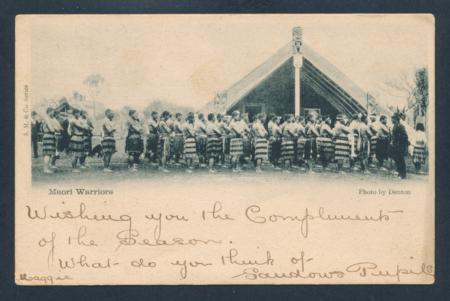 S. M. & Co. Series
Maori Warriors
Photo by Denton
Wishing you the Compliments
of the Season.
What do you think of
Sandows Pupils
Maggie